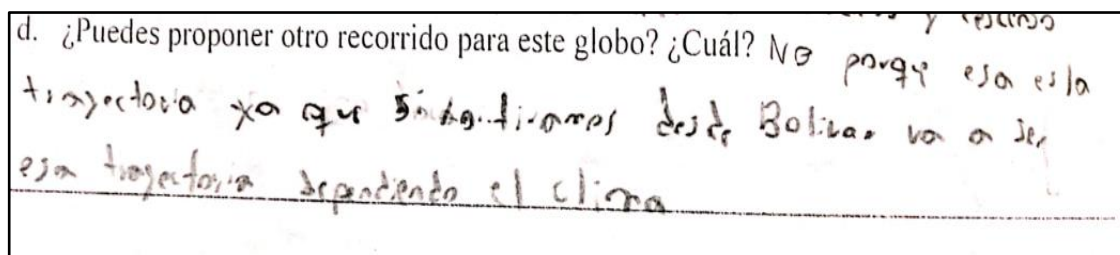 y rescurso
d. ¿Puedes proponer otro recorrido para este globo? ¿Cuál? No porque esa es la
trayectoria ya que si lo tiramos desde Bolivar va a ser
esa trayectoria dependiendo el clima